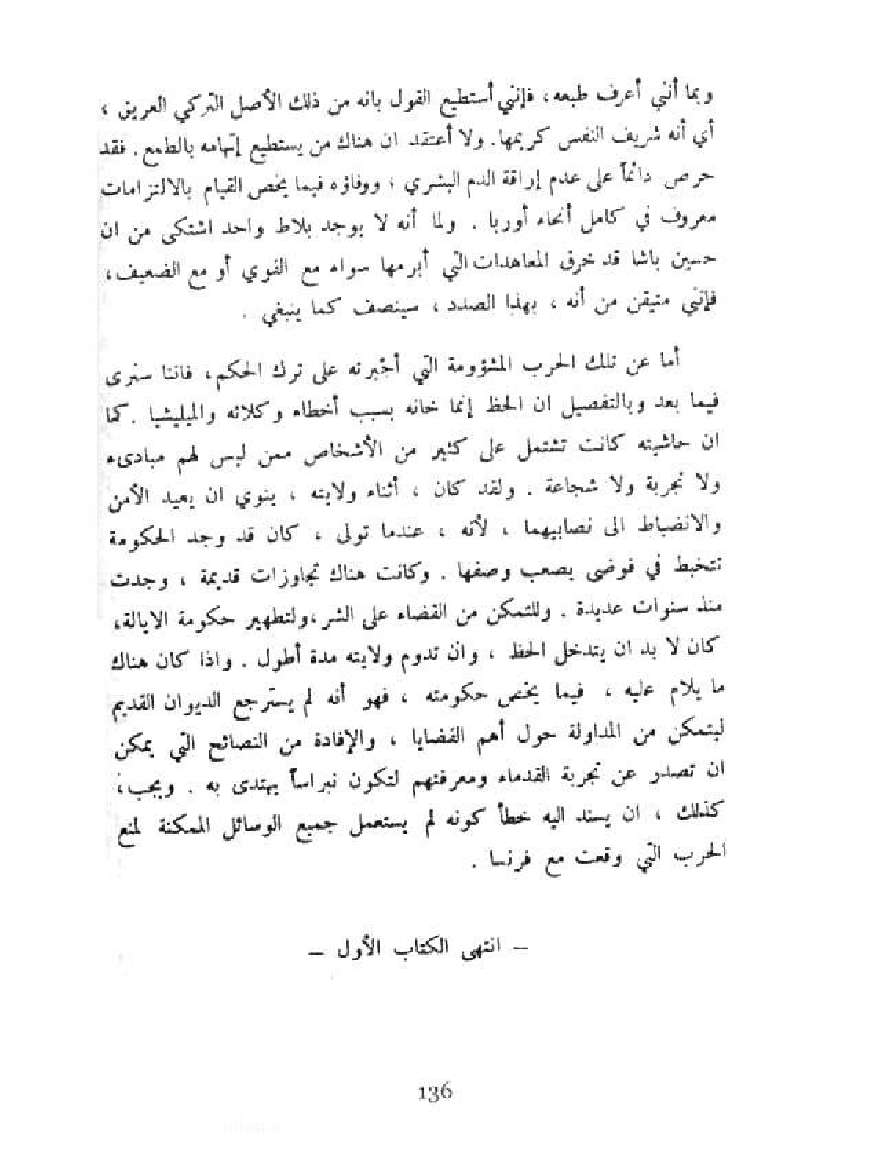 وبما أنني أعرف طبعه، فإنني أستطيع القول بانه من ذلك الأصل التركي العريق ،
أي أنه شريف النفس كريمها. ولا أعتقد ان هناك من يستطيع إتهامه بالطمع. فقد
حرص دائماً على عدم إراقة الدم البشري ؛ ووفاؤه فيما يخص القيام بالالتزامات
معروف في كامل أنحاء أوربا . ولما أنه لا يوجد بلاط واحد اشتكى من ان
حسين باشا قد خرق المعاهدات التي أبرمها سواء مع القوي أو مع الضعيف،
فإنني متيقن من أنه ، بهذا الصدد ، سينصف كما ينبغي .
أما عن تلك الحرب المشؤومة التي أجبرته على ترك الحكم، فاننا سنرى
فيما بعد وبالتفصيل ان الحظ إنما خانه بسبب أخطاء وكلائه والميليشيا . كما
ان حاشيته كانت تشتمل على كثير من الأشخاص ممن ليس لهم مبادىء
ولا تجربة ولا شجاعة . ولقد كان ، أثناء ولايته ، ينوي ان يعيد الأمن
والانضباط الى نصابيهما ، لأنه ، عندما تولى ، كان قد وجد الحكومة
تتخبط في فوضى يصعب وصفها . وكانت هناك تجاوزات قديمة ، وجدت
منذ سنوات عديدة . وللتمكن من القضاء على الشر ،ولتطهير حكومة الايالة،
كان لا بد ان يتدخل الحظ ، وان تدوم ولايته مدة أطول . واذا كان هناك
ما يلام عليه ، فيما يخص حكومته ، فهو أنه لم يسترجع الديوان القديم
ليتمكن من المداولة حول أهم القضايا ، والإفادة من النصائح التي يمكن
ان تصدر عن تجربة القدماء ومعرفتهم لتكون نبراساً يهتدى به . ويجب،
كذلك ، ان يسند اليه خطأ كونه لم يستعمل جميع الوسائل الممكنة لمنع
الحرب التي وقعت مع فرنسا .
– انتهى الكتاب الأول –
136